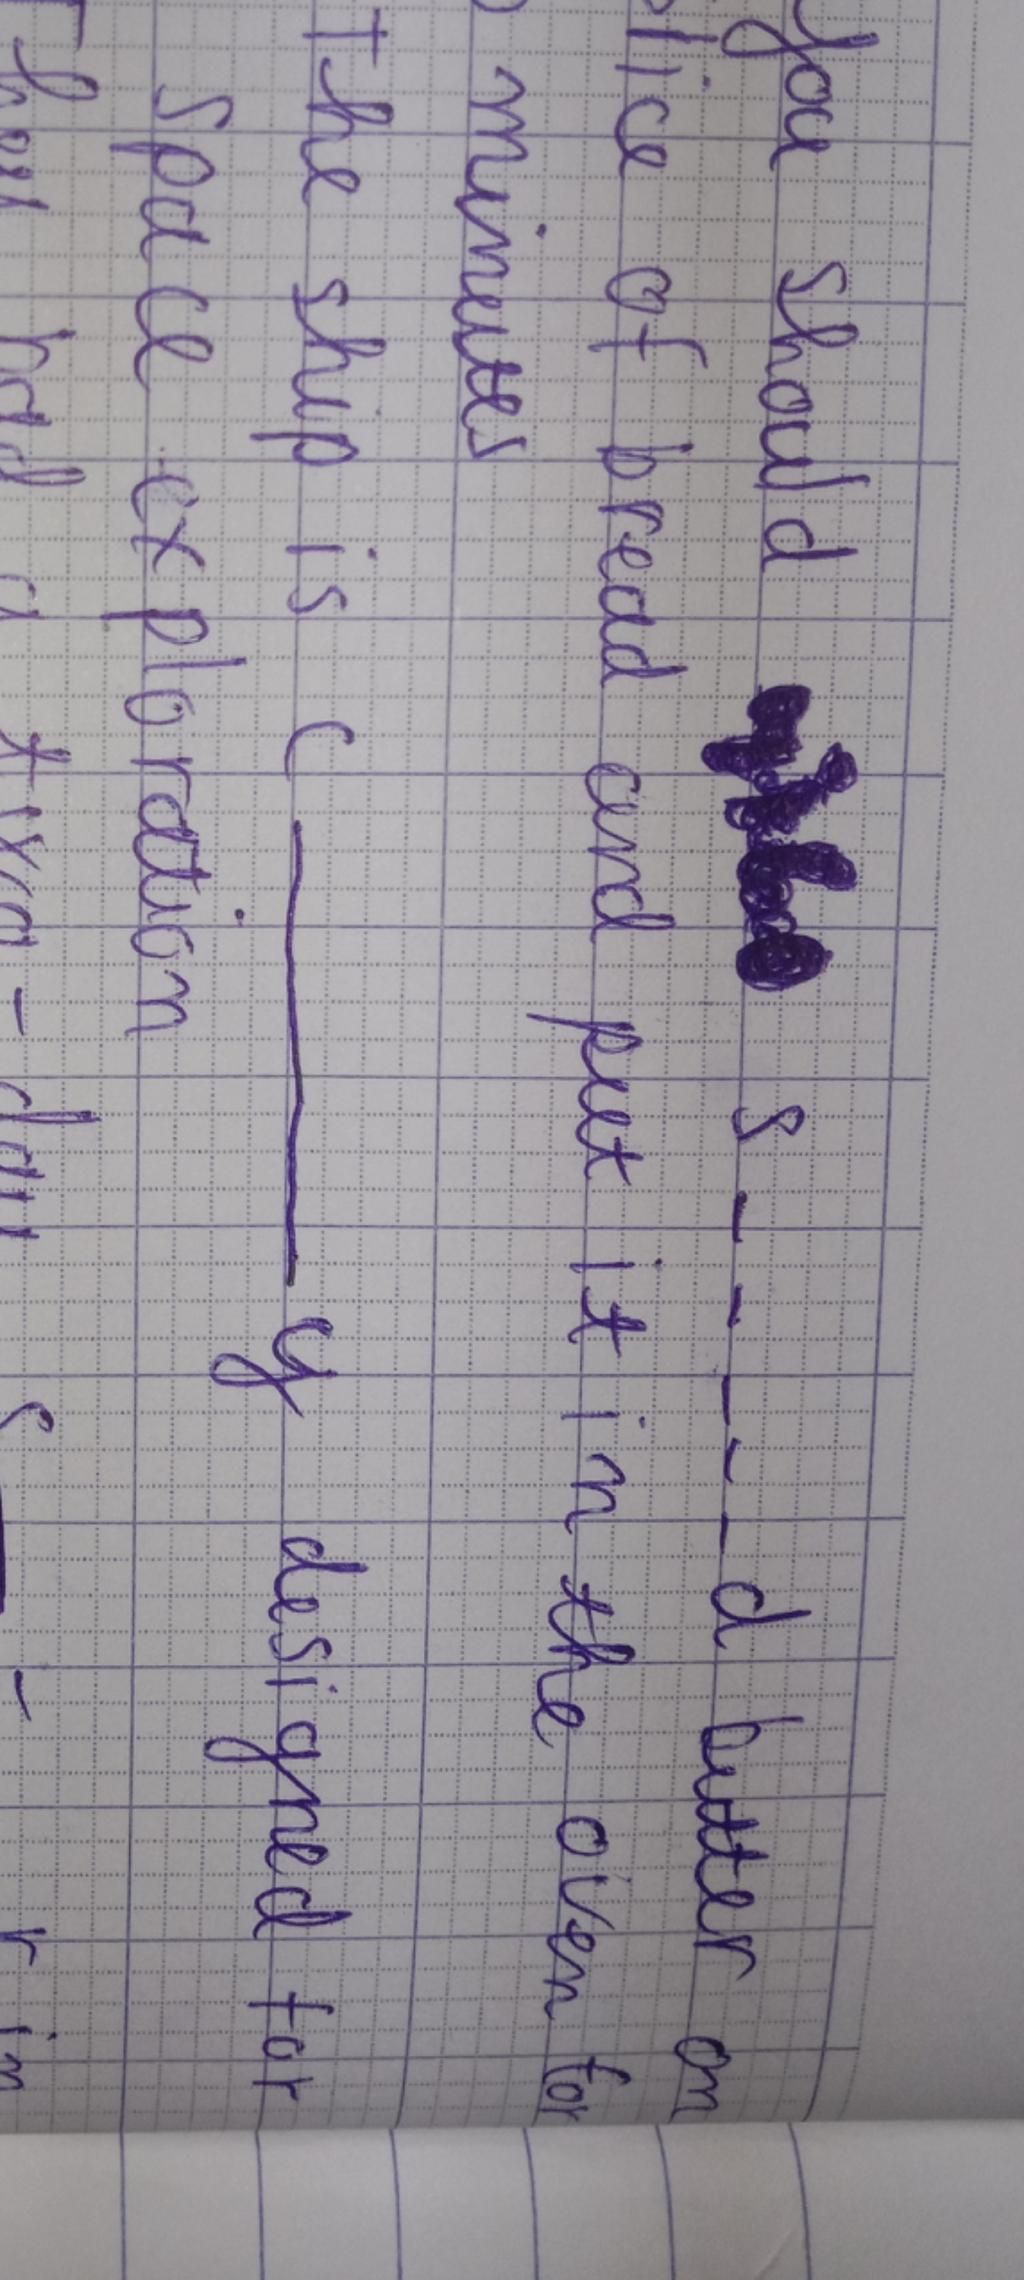 you should s-----d butter on
slice of bread and put it in the oven for
minutes
The ship is c———y designed for
space exploration
They had a two-day s